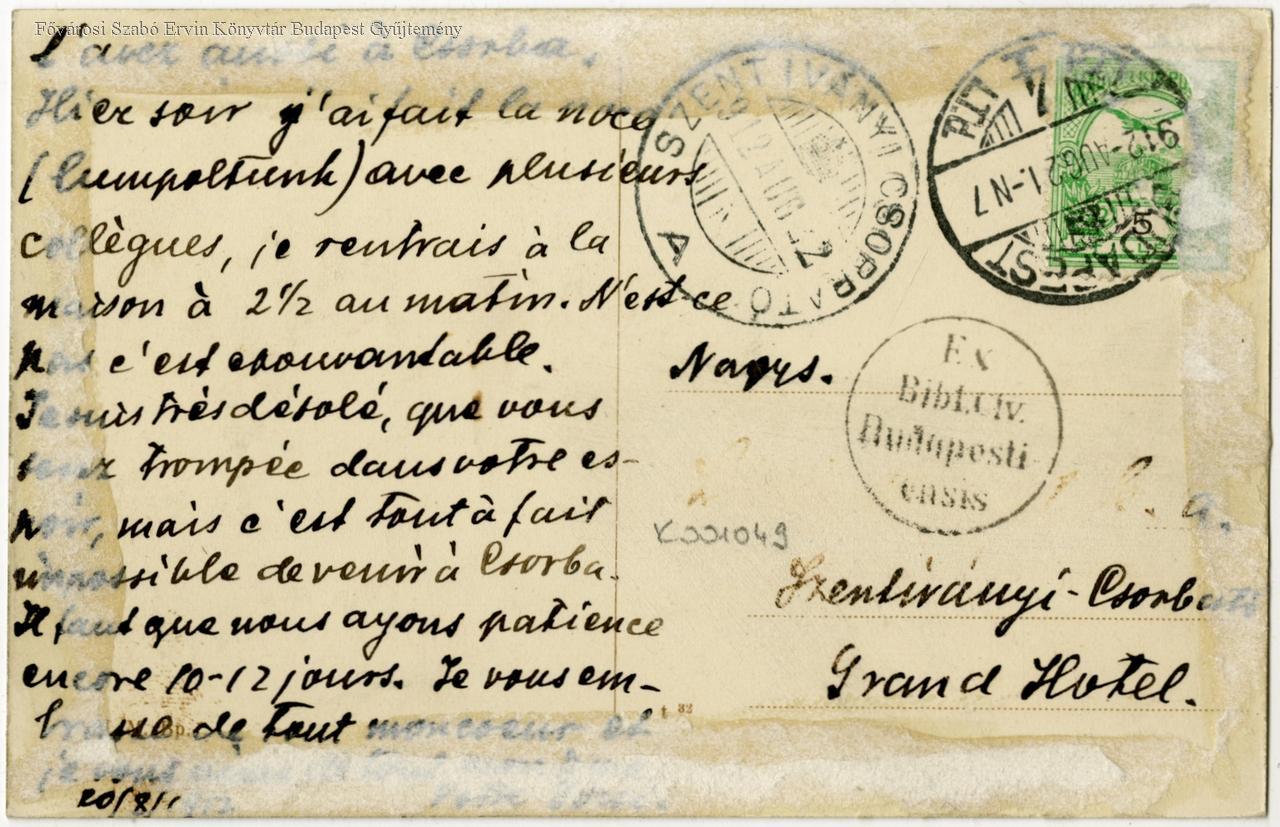 Fővárosi Szabó Ervin Könyvtár Budapest Gyűjtemény
à Csorba.
Hier soir j'ai fait la noce
(lumpoltunk) avec plusieurs
collègues, je rentrais à la
maison à 2½ au matin. N'est-ce
pas c'est epouvantable.
Je suis très désolé, que vous
trompée dans votre es-
poir, mais c'est tout à fait
impossible de venir à Csorba.
Il faut que nous ayons patience
encore 10-12 jours. Je vous em-
brasse de tout mon coeur et
je vous
20/8/
SZENTIVÁNYI CSORBATÓ
912 AUG 22
A
BUDAPEST
912-AUG 21.-N7
5
Nagys.
Ex
Bibl. Civ.
Budapesti-
ensis
K001049
Szentiványi-Csorbató
Grand Hotel.
32